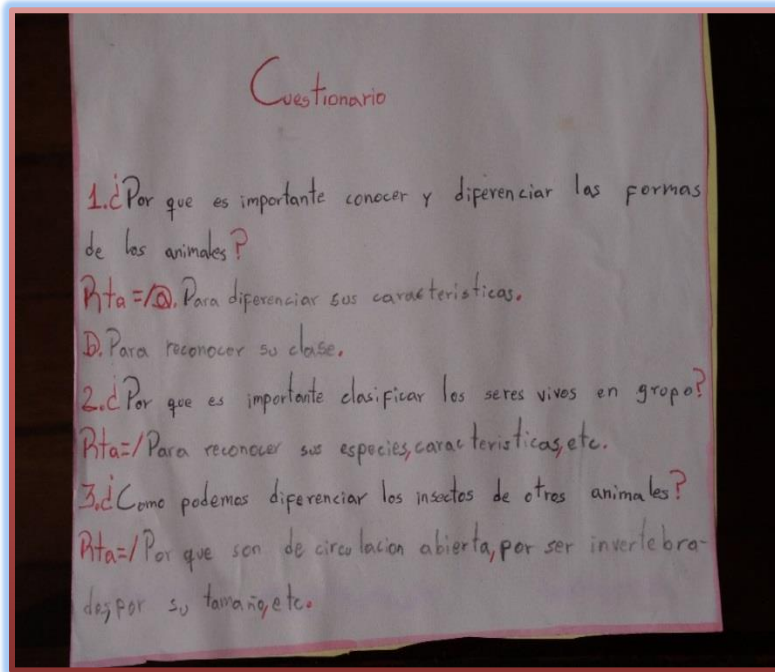 Cuestionario
1.¿Por que es importante conocer y diferenciar las formas
de los animales?
Rta=/a. Para diferenciar sus caracteristicas.
b. Para reconocer su clase.
2.¿Por que es importante clasificar los seres vivos en grupo?
Rta=/Para reconocer sus especies, caracteristicas, etc.
3.¿Como podemos diferenciar los insectos de otros animales?
Rta=/Por que son de circulacion abierta, por ser invertebra-
dos, por su tamaño, etc.